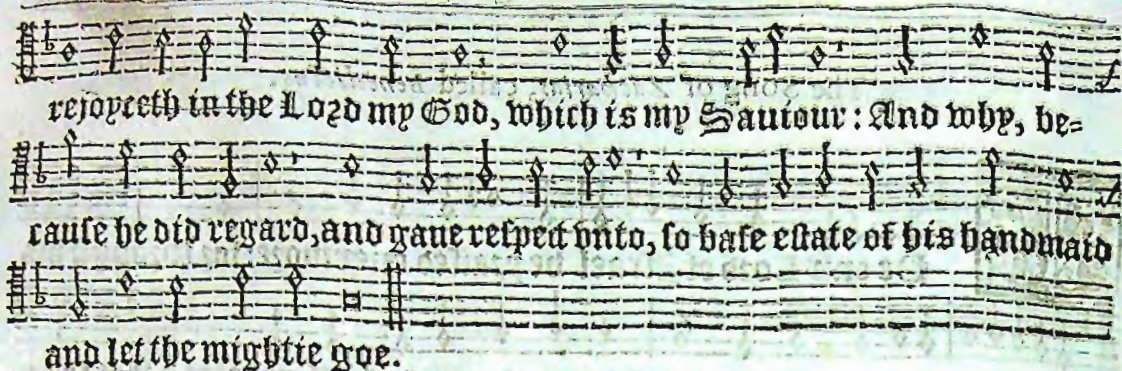 rejoyceth in the Lord my God, which is my Sauiour: And why, be=
cause he did regard, and gaue respect vnto, so base estate of his handmaid
and let the mightie goe.